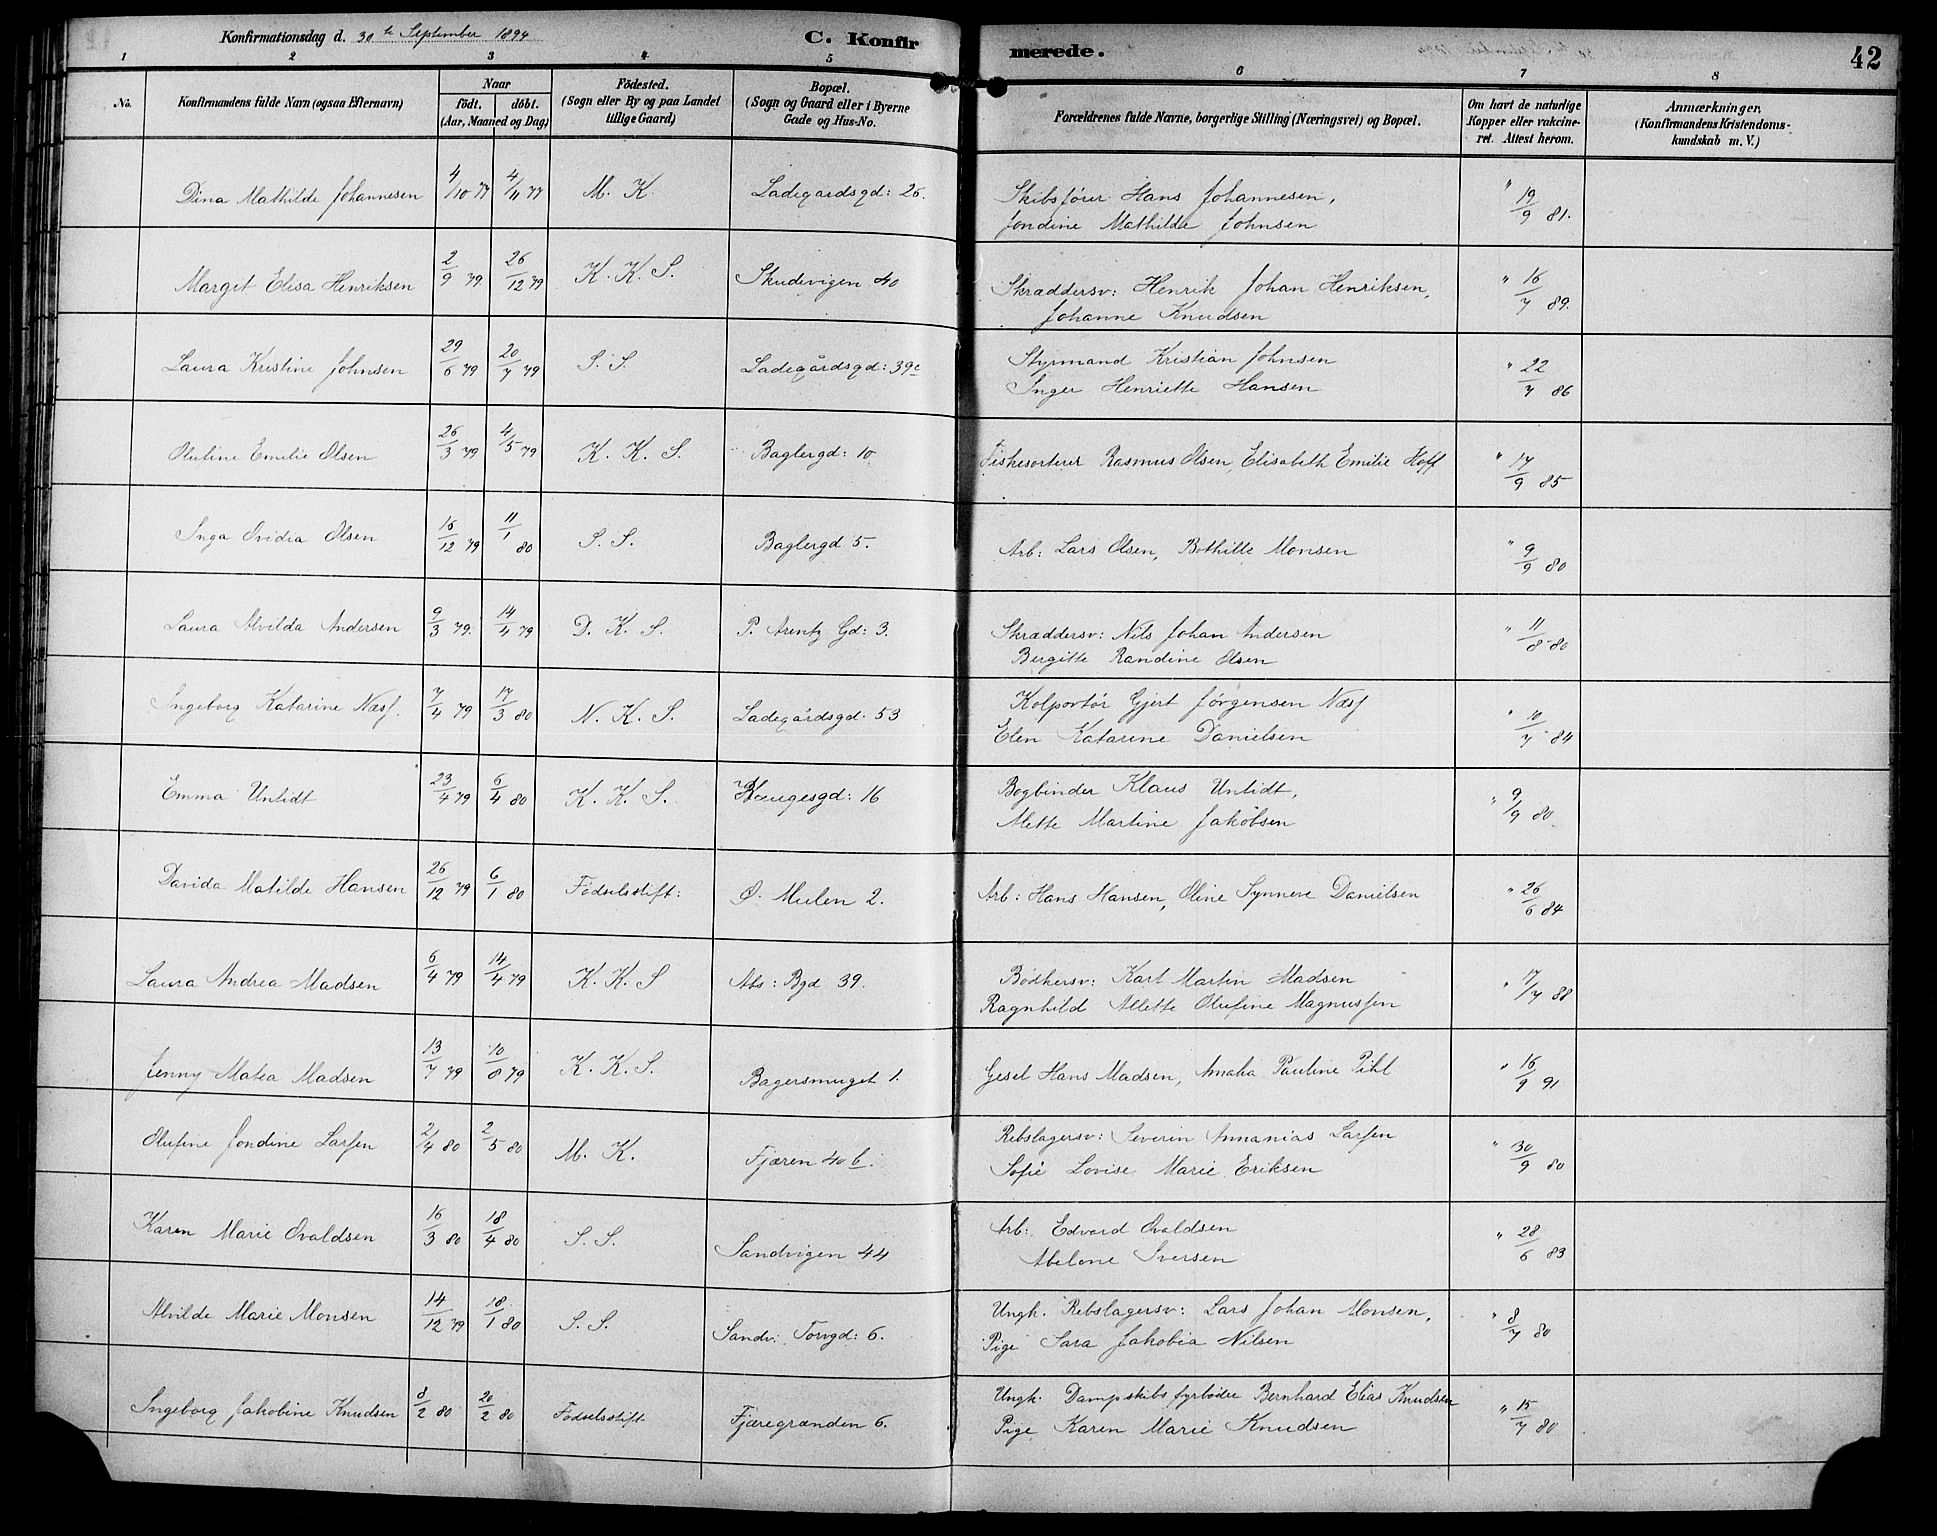 Konfirmationsdag d. 30te September 1894
C. Konfirmerede.
42
1 2 3 4 5 6 7 8
No.
Konfirmandens fulde Navn (ogsaa Efternavn)
Naar
født. døbt.
(Aar, Maaned og Dag)
Fødested.
(Sogn eller By og paa Landet
tillige Gaard)
Bopæl.
(Sogn og Gaard eller i Byerne
Gade og Hus-No.
Forældrenes fulde Navne, borgerlige Stilling (Næringsvei) og Bopæl.
Om havt de naturlige
Kopper eller vakcine-
ret. Attest herom.
Anmærkninger.
(Konfirmandens Kristendoms-
kundskab m. V.)
Dina Mathilde Johannesen 4/10 79 4/11 79 M. K. Ladegardsgd: 26. Skibsfører Hans Johannesen, " 19/9 81.
Jondine Mathilde Johnsen
Margit Elisa Henriksen 2/9 79 26/12 79 K. K. S. Skudevigen 40 Skræddersv: Henrik Johan Henriksen, " 16/7 89.
Johanne Knudsen
Laura Kristine Johnsen 29/6 79 20/7 79 S. S. Ladegårdsgd: 39c Styrmand Kristian Johnsen " 22/7 86
Inger Henriette Hansen
Olufine Emilie Olsen 26/3 79 4/5 79 K. K. S. Baglergd: 10 Fiskesorterer Rasmus Olsen, Elisabeth Emilie Hoff " 17/9 85
Inga Ovidia Olsen 16/12 79 11/1 80 S. S. Baglergd 5. Arb: Lars Olsen, Bothilte Monsen " 9/9 80
Laura Alvilda Andersen 9/3 79. 14/4 79 D. K. S. P. Arentz Gd: 3. Skræddersv: Nils Johan Andersen " 11/8 80
Bergitte Randine Olsen
Ingeborg Katarine Næss. 7/4 79 17/3 80 N. K. S. Ladegårdsgd: 53 Kolportør Gjert Jørgensen Næss " 10/7 84
Elen Katarine Danielsen
Emma Untidt 23/4 79 6/4 80 K. K. S. Haugesgd: 16 Bogbinder Klaus Untidt, " 9/9 80
Mette Martine Jakobsen
Davida Matilde Hansen 26/12 79 6/1 80 Fødselsstift: Ø. Mulen 2. Arb: Hans Hansen, Oline Synneve Danielsen " 26/6 84
Laura Andrea Madsen 6/4 79 14/4 79 K. K. S Abs: Bgd 39. Bødkersv: Karl Martin Madsen " 17/7 88
Ragnhild Allette Olufine Magnussen
Jenny Matea Madsen 13/7 79 10/8 79 K. K. S. Bagersmuget 1. Gesel Hans Madsen, Amalia Pauline Pihl " 16/9 91
Olufine Jondine Larsen 2/4 80 2/5 80 M. K. Fjæren 40 b. Rebslagersv: Severin Annanias Larsen " 30/9 80
Sofie Lovise Marie Eriksen
Karen Marie Ovaldsen 16/3 80 18/4 80 S. S. Sandvigen 44 Arb: Edvard Ovaldsen " 28/6 83
Abelone Iversen
Alvilde Marie Monsen 14/12 79 18/1 80 S. S. Sandv: Torvgd: 6. Ungk. Rebslagersv: Lars Johan Monsen, " 8/7 80
Pige Sara Jakobia Nilsen
Ingeborg Jakobine Knudsen 8/2 80 20/2 80 Fødselsstift Fjæregrænden 6. Ungk. Dampskibsfyrbøder Bernhard Elias Knudsen " 15/7 80
Pige Karen Marie Knudsen